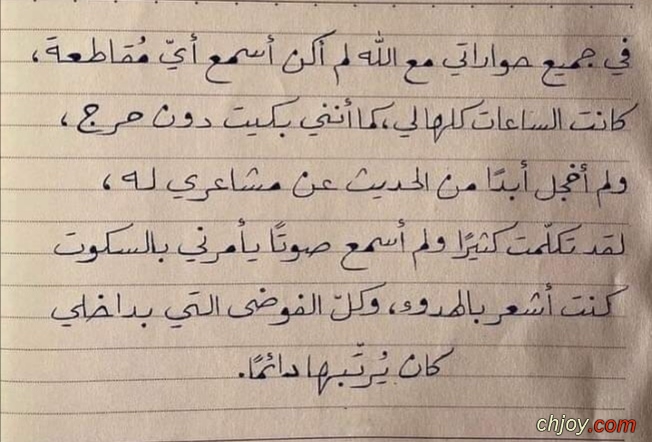 في جميع حواراتي مع الله لم أكن أسمع أيّ مُقاطعة،
كانت الساعات كلها لي، كما أنني بكيت دون حرج،
ولم أخجل أبدًا من الحديث عن مشاعري له،
لقد تكلّمت كثيرًا ولم أسمع صوتًا يأمرني بالسكوت
كنت أشعر بالهدوء، وكلّ الفوضى التي بداخلي
كان يُرتّبها دائمًا.
chjoy.com